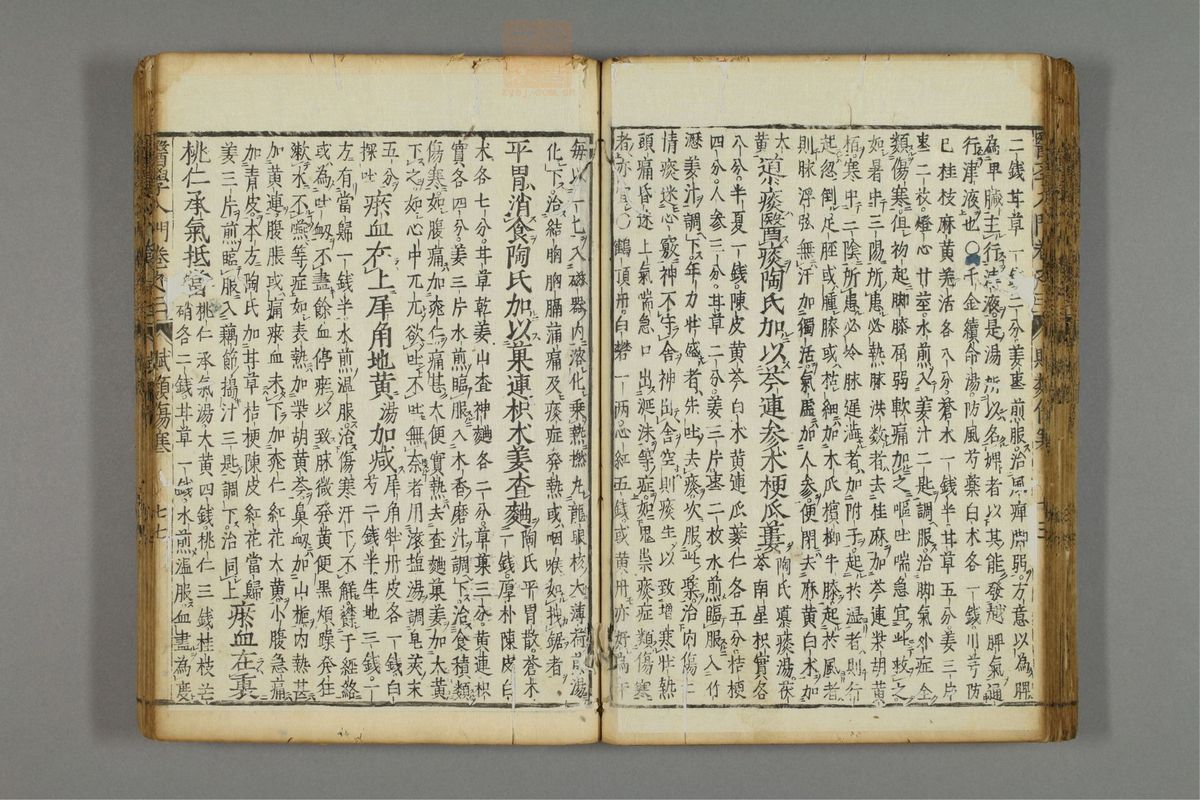 二錢甘草一錢二分姜棗煎服治風痺脚弱方意以為脾
為卑臟主行津液是湯所以名婢者以其能發越脾氣通
行津液也○千金續命湯防風芍藥白朮各一錢川芎防
已桂枝麻黃羌活各八分蒼朮一錢半甘草五分姜三片
棗二枚燈心廿莖水煎入姜汁二匙調服治脚氣外症全
類傷寒但初起脚膝屈弱軟痛加之嘔吐喘急宜此救之
如暑中三陽所患必熱脉洪数者去桂麻加芩連柴胡黃
栢寒中三陰所患必冷脉遲澁者加附子起於濕者則行
起忽倒足脛或腫膝或枯細加木瓜檳榔牛膝起於風者
則脉浮弦無汗加獨活氣虛加人參便閉去麻黃白朮加
大黃導痰醫痰陶氏加以芩連參朮梗瓜蔞陶氏導痰湯茯苓南星枳實各
八分半夏一錢陳皮黃芩白朮黃連瓜蔞仁各五分桔梗
四分人參三分甘草二分姜三片棗二枚水煎臨服入竹
瀝姜汁調下年力壯盛者先吐去痰次服此藥治內傷七
情痰迷心竅神不守舍神出舍空則痰生以致增寒壯熱
頭痛昏迷上氣喘急口出涎沫等症如鬼祟痰症類傷寒
者亦宜○鶴頂丹白礬一兩心紅五錢或黃丹亦好為末
每以一匕入磁器內溶化乘熱撚丸龍眼核大薄荷煎湯
化下治結胸胸膈滿痛及痰症發熱或咽喉如拽鋸者
平胃消食陶氏加以菓連枳朮姜查麯陶氏平胃散蒼朮一錢厚朴陳皮白
朮各七分甘草乾姜山查神麯各二分草菓三分黃連枳
實各四分姜三片水煎臨服入木香磨汁調下治食積類
傷寒如腹痛加桃仁痛甚大便實熱去查麯菓姜加大黃
下之如心中兀兀欲吐不吐無奈者用滚塩湯調皂莢末
五分探吐瘀血在上犀角地黃湯加減犀角牡丹皮各一錢白芍二錢半生地三錢一
左有當歸一錢半水煎溫服治傷寒汗下不解鬱于經絡
或為吐衂不盡餘血停瘀以致脉微發黃便黒煩躁發狂
漱水不嚥等症如表熱加柴胡黃芩鼻衂加山梔內熱甚
加黃連腹脹或痛瘀血未下加桃仁紅花大黃小腹急痛
加青皮本左陶氏加甘草桔梗陳皮紅花當歸
姜三片煎臨服入藕節搗汁三匙調下治同上瘀血在裏
桃仁承氣抵當桃仁承氣湯大黃四錢桃仁三錢桂枝芒硝各二錢甘草一錢水煎溫服血盡為度